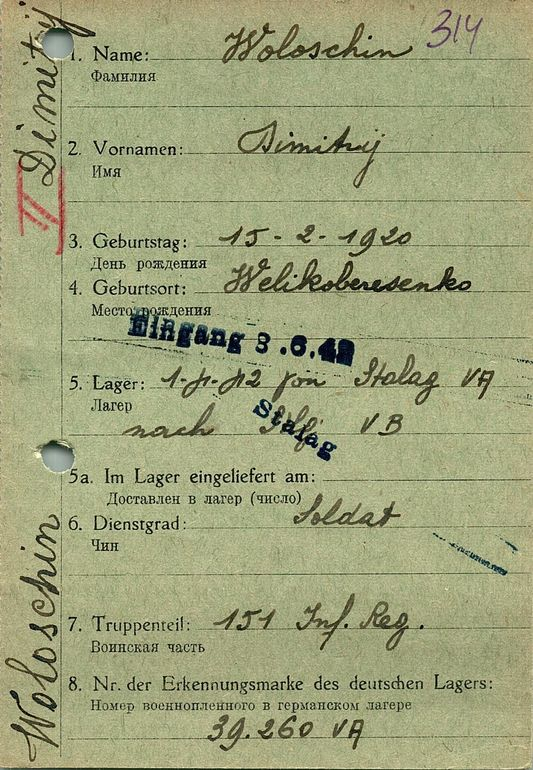 314
1. Name: Woloschin
Фамилия
2. Vornamen: Dimitrij
Имя
3. Geburtstag: 15-2-1920
День рождения
4. Geburtsort: Welikoberesenko
Место рождения
Eingang 3.6.42
5. Lager: von Stalag VA
Лагер
nach VB
Stalag
5a. Im Lager eingeliefert am:
Доставлен в лагер (число)
6. Dienstgrad: Soldat
Чин
7. Truppenteil: 151 Inf. Reg.
Воинская часть
8. Nr. der Erkennungsmarke des deutschen Lagers:
Номер военнопленного в германском лагере
39.260 VA
Woloschin
II Dimitrij